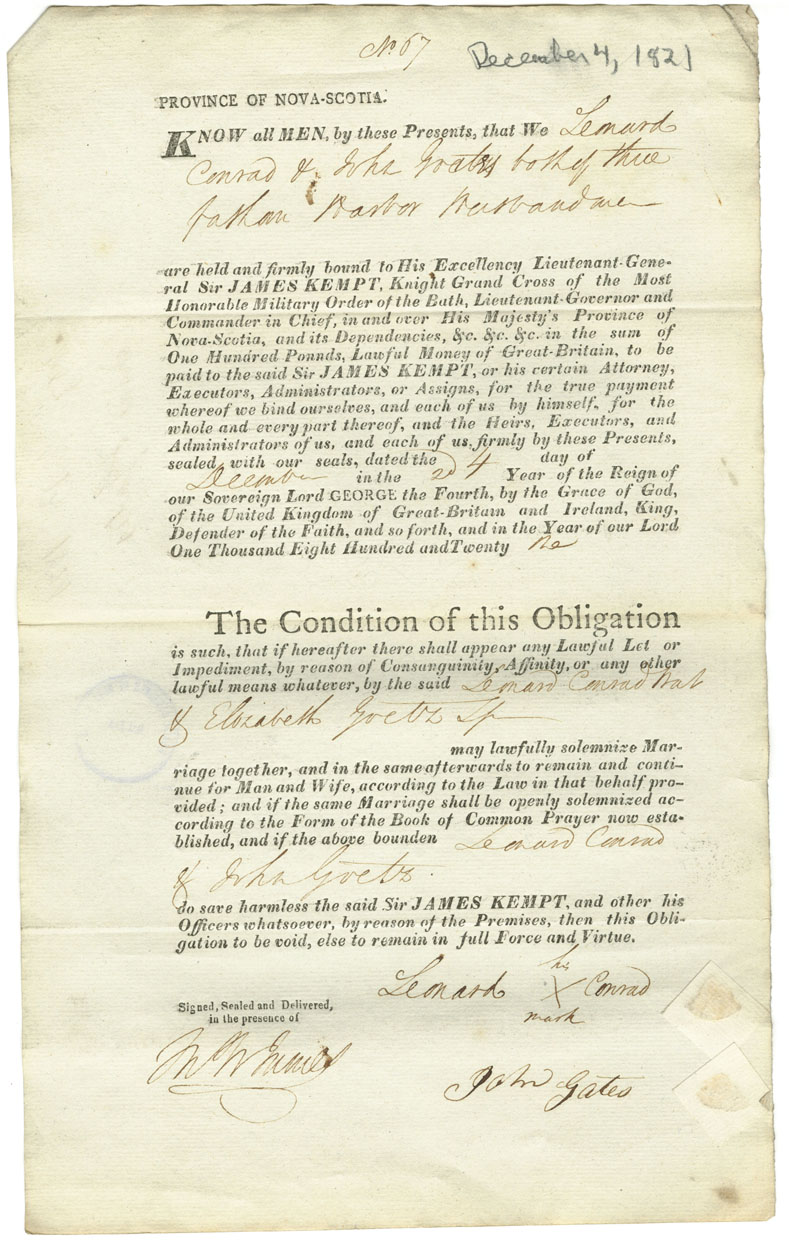 No 67
December 4, 1821
PROVINCE OF NOVA-SCOTIA.
KNOW all MEN, by these Presents, that We Leonard
Conrad & John Goetz both of three
fathom Harbor Husbandmen
are held and firmly bound to His Excellency Lieutenant-Gene-
ral Sir JAMES KEMPT, Knight Grand Cross of the Most
Honorable Military Order of the Bath, Lieutenant-Governor and
Commander in Chief, in and over His Majesty's Province of
Nova-Scotia, and its Dependencies, &c. &c. &c. in the sum of
One Hundred Ponnds, Lawful Money of Great-Britain, to be
paid to the said Sir JAMES KEMPT, or his certain Attorney,
Executors, Administrators, or Assigns, for the true payment
whereof we bind ourselves, and each of us by himself, for the
whole and every part thereof, and the Heirs, Executors, and
Administrators of us, and each of us, firmly by these Presents,
sealed with our seals, dated the 4 day of
December in the 2d Year of the Reign of
our Sovereign Lord GEORGE the Fourth, by the Grace of God,
of the United Kingdom of Great-Britain and Ireland, King,
Defender of the Faith, and so forth, and in the Year of our Lord
One Thousand Eight Hundred and Twenty
The Condition of this Obligation
is such, that if hereafter there shall appear any Lawful Let or
Impediment, by reason of Consanguinity, Affinity, or any other
lawful means whatever, by the said Leonard Conrad Bat
& Elizabeth Goetz Sp
may lawfully solemnize Mar-
riage together, and in the same afterwards to remain and conti-
nue for Man and Wife, according to the Law in that behalf pro-
vided; and if the same Marriage shall be openly solemnized ac-
cording to the Form of the Book of Common Prayer now esta-
blished, and if the above bounden Leonard Conrad
& John Goetz.
do save harmless the said Sir JAMES KEMPT, and other his
Officers whatsoever, by reason of the Premises, then this Obli-
gation to be void, else to remain in full Force and Virtue.
his
Leonard X Conrad
mark
Signed, Sealed and Delivered,
in the presence of
John Gates